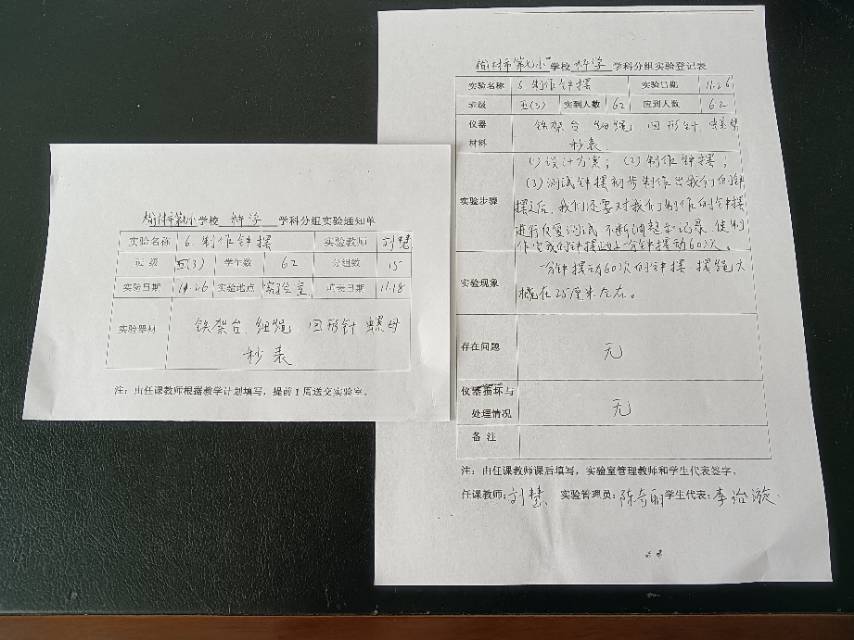 榆林市第九小学校 科学 学科分组实验通知单
实验名称 6. 制作钟摆 实验教师 刘慧
班级 五(3) 学生数 62 分组数 15
实验日期 11.26 实验地点 实验室 填表日期 11.18
实验器材 铁架台、细绳 回形针 螺母
秒表
注：由任课教师根据教学计划填写，提前1周送交实验室。
榆林市第九小学校 科学 学科分组实验登记表
实验名称 6. 制作钟摆 实验日期 11.26
班级 五(3) 实到人数 62 应到人数 62
仪器 铁架台 细绳 回形针 螺母
材料 秒表
(1)设计方案；(2)制作钟摆；
(3)测试钟摆初步制作出我们的钟
实验步骤
摆之后，我们还要对我们制作的钟摆
进行反复测试，不断调整与记录，使制
作完成的钟摆 一分钟摆动60次。
一分钟摆动60次的钟摆 摆绳大
实验现象
概在25厘米左右。
存在问题 无
仪器损坏与
处理情况 无
备注
注：由任课教师课后填写，实验室管理教师和学生代表签字。
任课教师：刘慧 实验管理员：陈奇丽 学生代表：李治漩